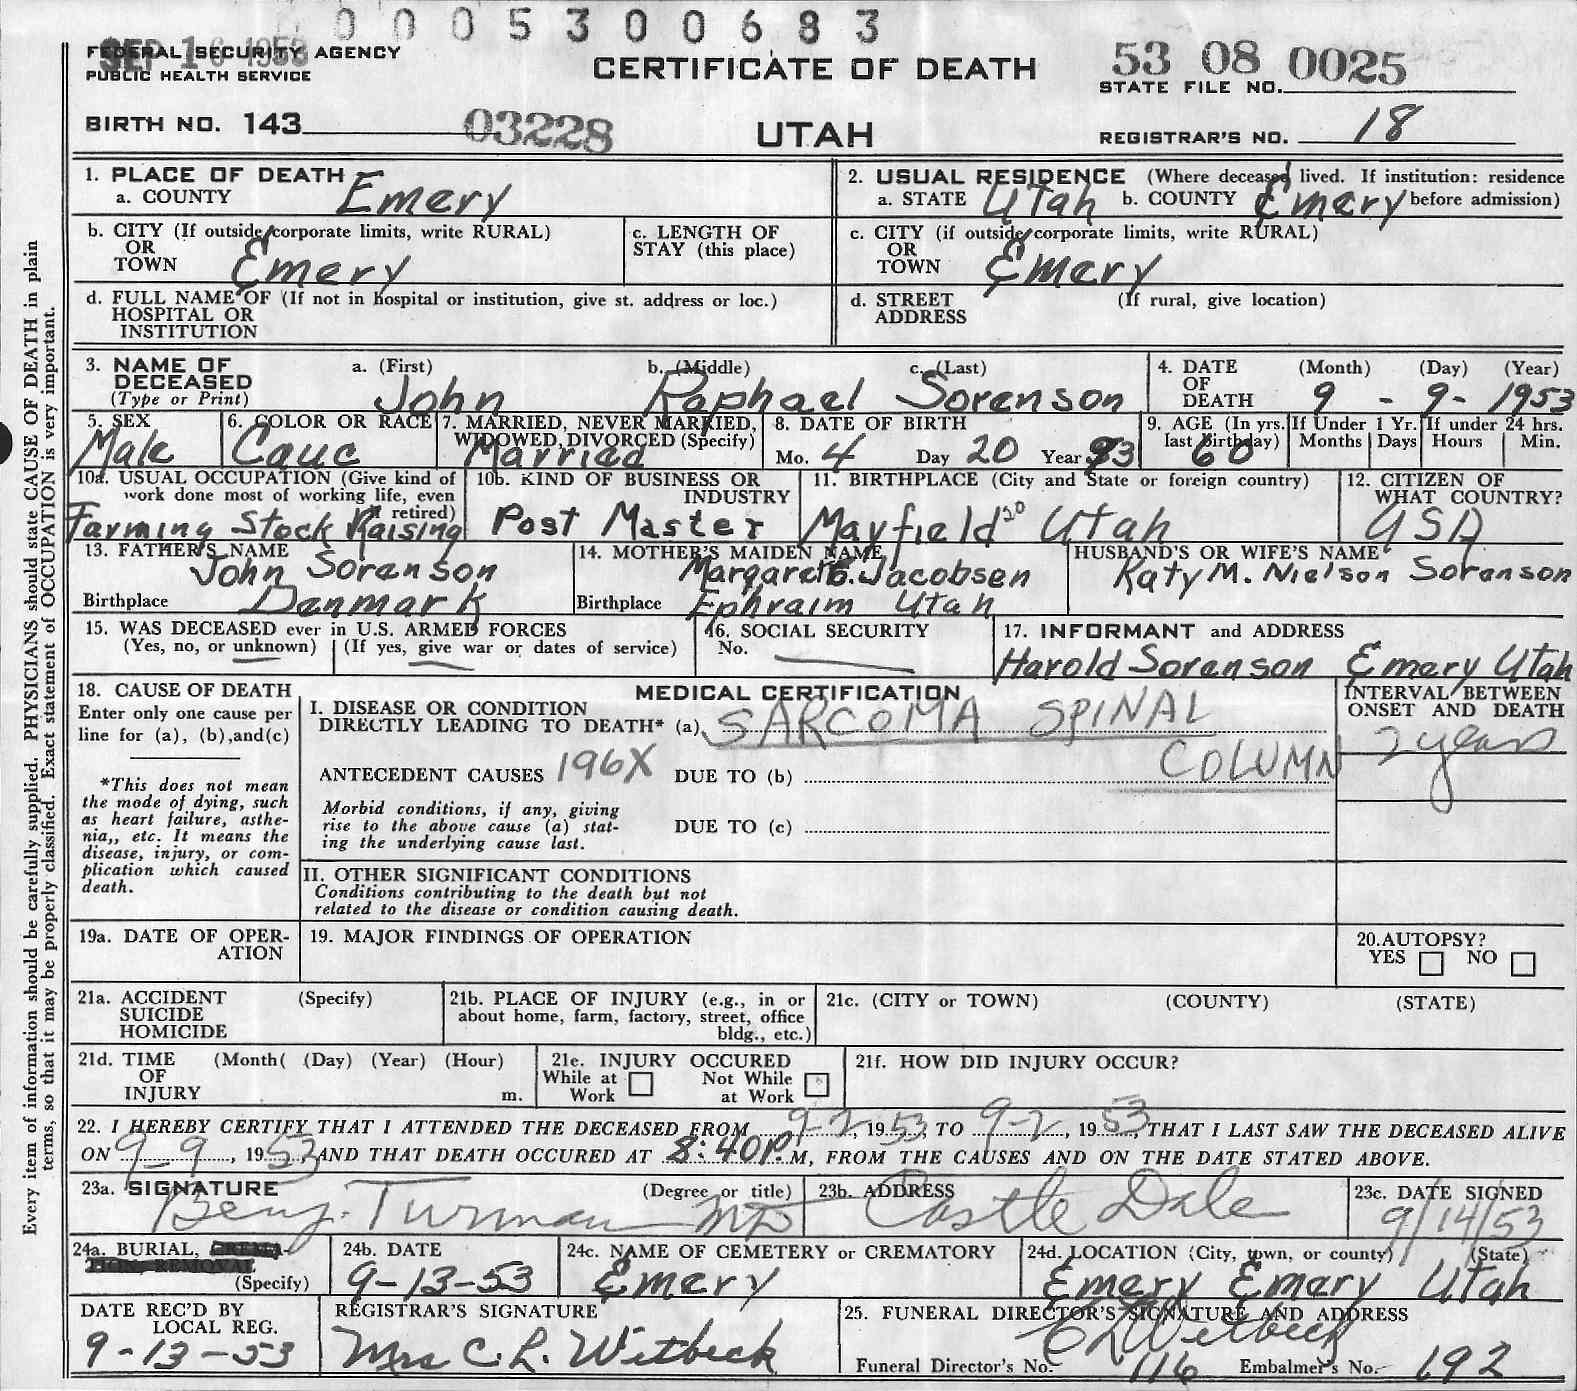 0 0 0 5 3 0 0 6 8 3
SEP 16 1953
FEDERAL SECURITY AGENCY
PUBLIC HEALTH SERVICE
CERTIFICATE OF DEATH
53 08 0025
STATE FILE NO.
BIRTH NO. 143 03228
UTAH
REGISTRAR'S NO. 18
Every item of information should be carefully supplied. PHYSICIANS should state CAUSE OF DEATH in plain
terms, so that it may be properly classified. Exact statement of OCCUPATION is very important.
1. PLACE OF DEATH
a. COUNTY Emery
2. USUAL RESIDENCE (Where deceased lived. If institution: residence
a. STATE Utah b. COUNTY Emery before admission)
b. CITY (If outside corporate limits, write RURAL)
OR
TOWN Emery
c. LENGTH OF
STAY (this place)
c. CITY (if outside corporate limits, write RURAL)
OR
TOWN Emery
d. FULL NAME OF (If not in hospital or institution, give st. address or loc.)
HOSPITAL OR
INSTITUTION
d. STREET (If rural, give location)
ADDRESS
3. NAME OF a. (First) b. (Middle) c. (Last)
DECEASED
(Type or Print) John Raphael Sorenson
4. DATE (Month) (Day) (Year)
OF
DEATH 9 - 9 - 1953
5. SEX
Male
6. COLOR OR RACE
Cauc
7. MARRIED, NEVER MARRIED,
WIDOWED, DIVORCED (Specify)
Married
8. DATE OF BIRTH
Mo. 4 Day 20 Year 93
9. AGE (In yrs.
last birthday)
60
If Under 1 Yr.
Months Days
If under 24 hrs.
Hours Min.
10a. USUAL OCCUPATION (Give kind of
work done most of working life, even
if retired)
Farming Stock Raising
10b. KIND OF BUSINESS OR
INDUSTRY
Post Master
11. BIRTHPLACE (City and State or foreign country)
Mayfield 20 Utah
12. CITIZEN OF
WHAT COUNTRY?
USA
13. FATHER'S NAME
John Sorenson
Birthplace Denmark
14. MOTHER'S MAIDEN NAME
Margaret E. Jacobsen
Birthplace Ephraim Utah
HUSBAND'S OR WIFE'S NAME
Katy M. Nielson Sorenson
15. WAS DECEASED ever in U.S. ARMED FORCES
(Yes, no, or unknown) (If yes, give war or dates of service)
16. SOCIAL SECURITY
No.
17. INFORMANT and ADDRESS
Harold Sorenson Emery Utah
18. CAUSE OF DEATH
Enter only one cause per
line for (a), (b), and (c)
*This does not mean
the mode of dying, such
as heart failure, asthe-
nia,, etc. It means the
disease, injury, or com-
plication which caused
death.
MEDICAL CERTIFICATION
I. DISEASE OR CONDITION
DIRECTLY LEADING TO DEATH* (a) SARCOMA SPINAL
COLUMN
ANTECEDENT CAUSES 196X DUE TO (b)
Morbid conditions, if any, giving
rise to the above cause (a) stat-
ing the underlying cause last.
DUE TO (c)
INTERVAL BETWEEN
ONSET AND DEATH
2 years
II. OTHER SIGNIFICANT CONDITIONS
Conditions contributing to the death but not
related to the disease or condition causing death.
19a. DATE OF OPER-
ATION
19. MAJOR FINDINGS OF OPERATION
20. AUTOPSY?
YES NO
21a. ACCIDENT (Specify)
SUICIDE
HOMICIDE
21b. PLACE OF INJURY (e.g., in or
about home, farm, factory, street, office
bldg., etc.)
21c. (CITY or TOWN) (COUNTY) (STATE)
21d. TIME (Month( (Day) (Year) (Hour)
OF
INJURY m.
21e. INJURY OCCURED
While at Work Not While at Work
21f. HOW DID INJURY OCCUR?
22. I HEREBY CERTIFY THAT I ATTENDED THE DECEASED FROM 9-2, 1953, TO 9-2, 1953, THAT I LAST SAW THE DECEASED ALIVE
ON 9-9, 1953, AND THAT DEATH OCCURED AT 8:40 P.M, FROM THE CAUSES AND ON THE DATE STATED ABOVE.
23a. SIGNATURE (Degree or title)
Benj. Turman MD
23b. ADDRESS
Castle Dale
23c. DATE SIGNED
9/14/53
24a. BURIAL, CREMA-
TION, REMOVAL
(Specify)
24b. DATE
9-13-53
24c. NAME OF CEMETERY or CREMATORY
Emery
24d. LOCATION (City, town, or county) (State)
Emery Emery Utah
DATE REC'D BY
LOCAL REG.
9-13-53
REGISTRAR'S SIGNATURE
Mrs C. L. Witbeck
25. FUNERAL DIRECTOR'S SIGNATURE AND ADDRESS
C L Witbeck
Funeral Director's No. 116 Embalmer's No. 192